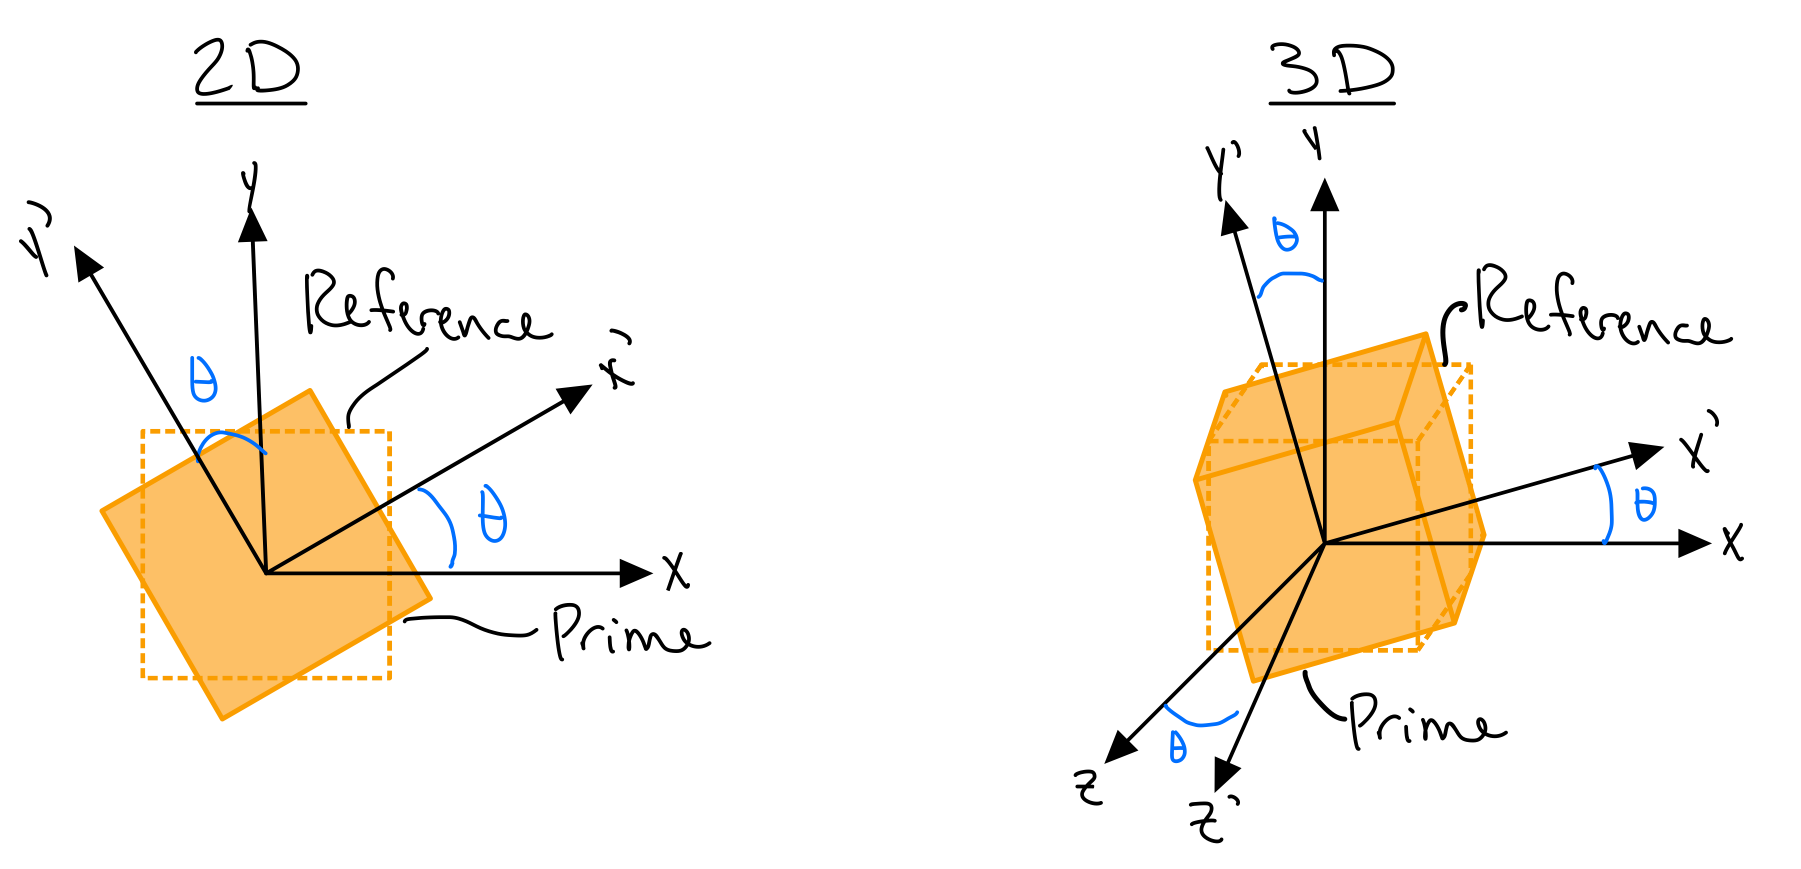 2D
y'
y
Reference
θ
x'
θ
x
Prime
3D
y'
y
θ
Reference
x'
θ
x
Prime
θ
z
z'